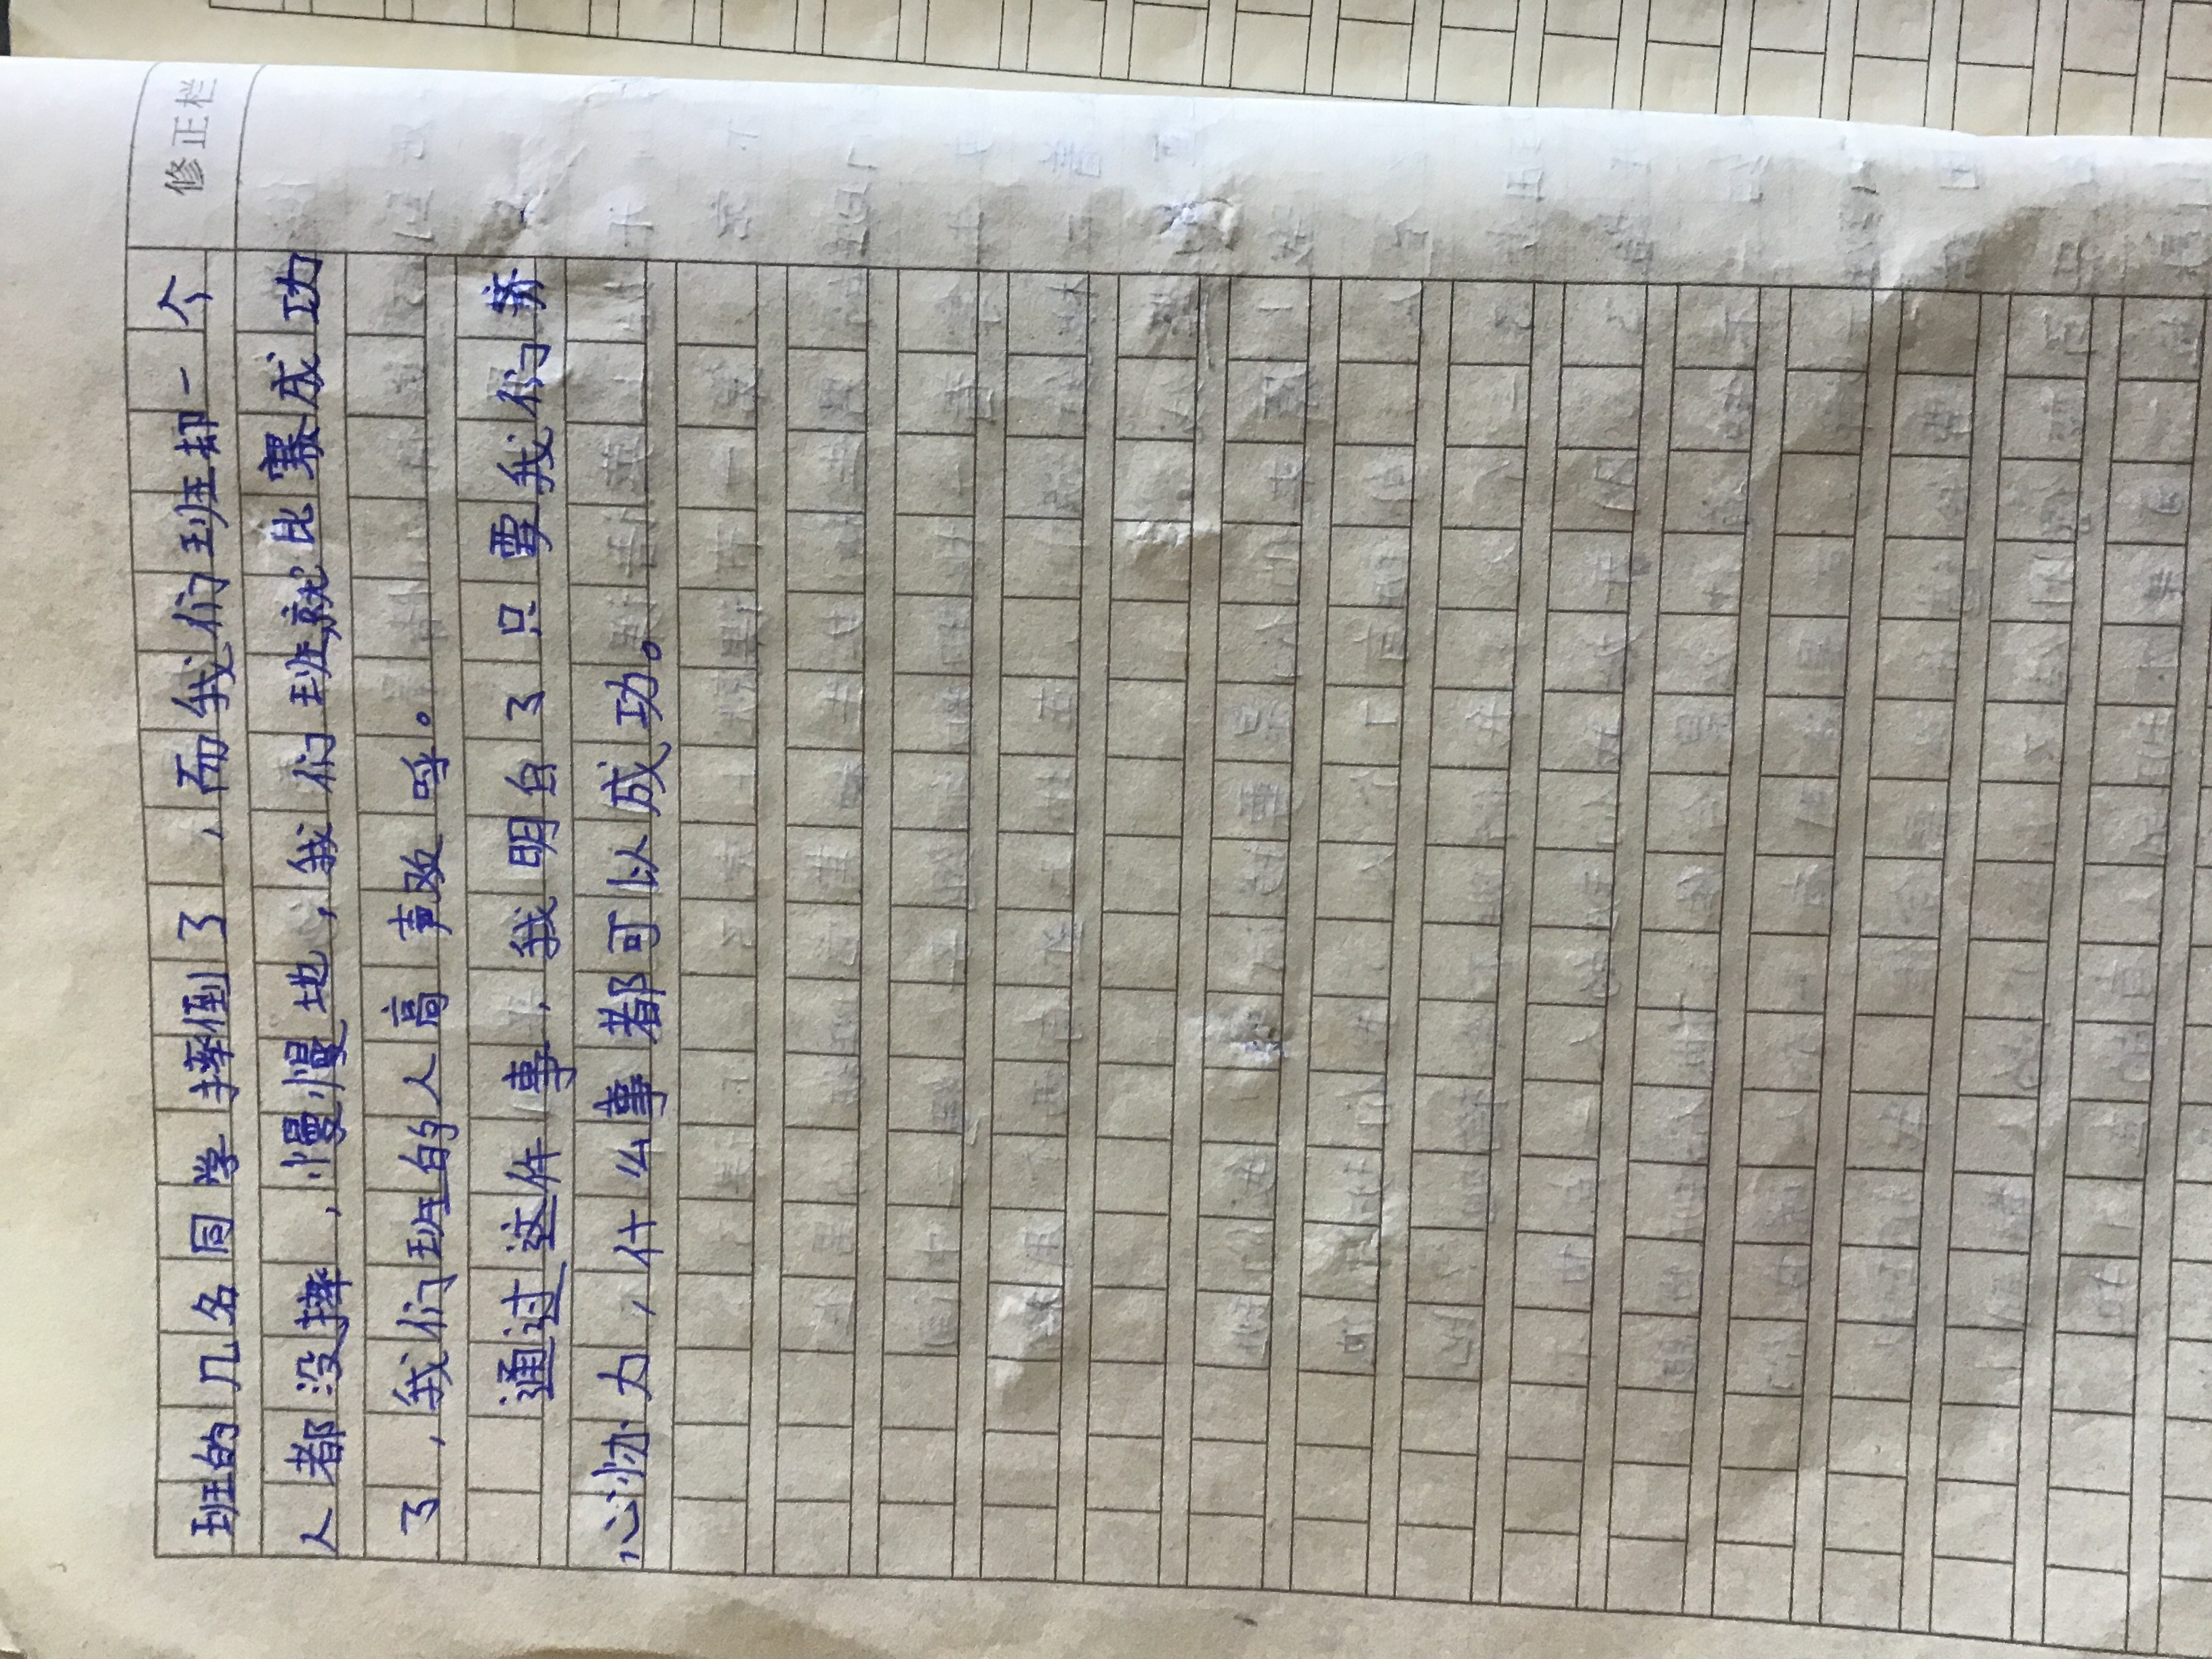 修正栏
班的几名同学摔倒了，而我们班却一个
人都没摔，慢慢地，我们班就比赛成功
了，我们班的人高声欢呼。
通过这件事，我明白了只要我们齐
心协力，什么事都可以成功。